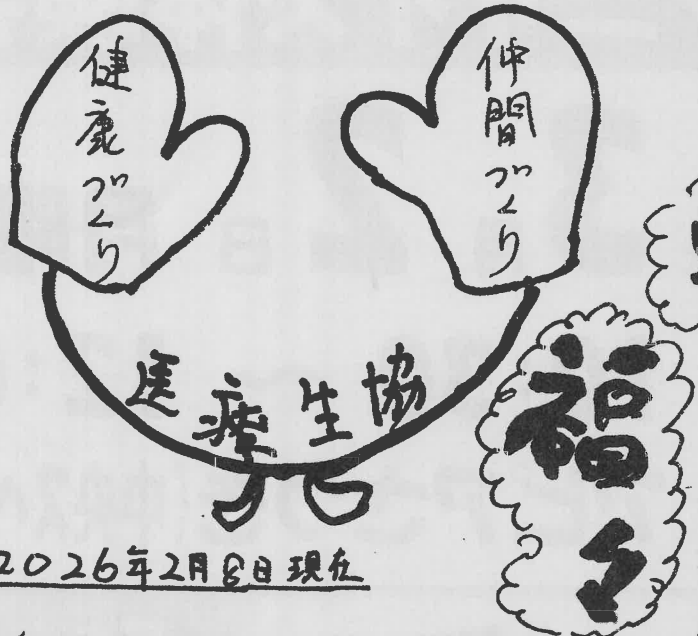 健康づくり
仲間づくり
医療生協
福
2026年2月8日現在